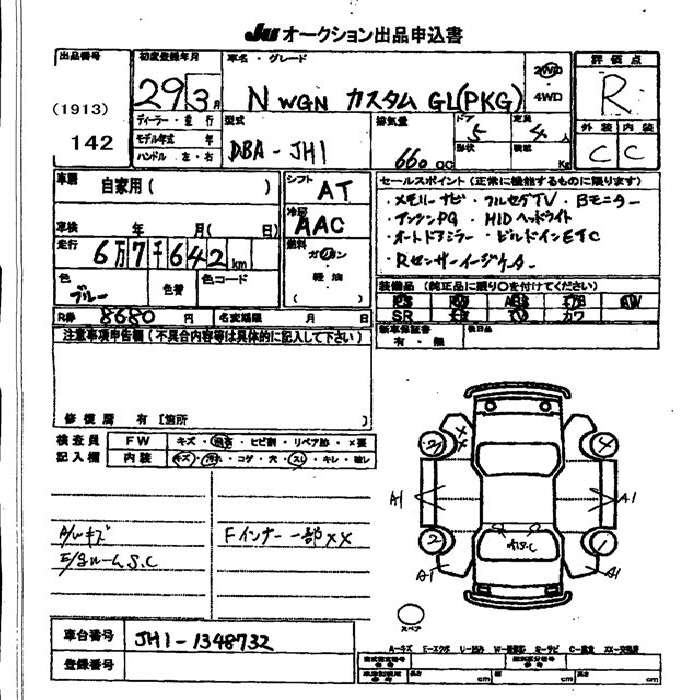 JU オークション出品申込書
出品番号
(1913)
142
初度登録年月
29 3 月
車名・グレード
N WGN カスタム GL(PKG)
2WD
・
4WD
評価点
R
外装 内装
C C
ディーラー・並行
モデル年式 年
ハンドル 左・右
型式
DBA-JH1
排気量
660 cc
ドア
5
定員
4 人
形状
積載
Kg
車歴
自家用 ( )
車検 年 月( 日)
走行
6万7千642 km
色
ブルー
色替
色コード
シフト
AT
冷房
AAC
燃料
ガソリン
軽油
( )
セールスポイント (正常に機能するものに限ります)
・メモリーナビ ・フルセグTV ・Bモニター
・HIDヘッドライト
・オートドアミラー ・ビルドインETC
装備品 (純正品に限り○を付けてください)
PS PW ABS エアB AW
SR TV カワ
新車保証書
有・無
後日品
R券 8680 円
名変期限 月 日
注意事項申告欄 (不具合内容等は具体的に記入して下さい)
修復歴 有 [箇所 ]
検査員
記入欄
FW キズ・飛石・ヒビ割・リペア跡・×要
内装 キズ・汚れ・コゲ・穴・スレ・キレ・破レ
A/Wキズ
E/gルームS.C
Fインナー一部××
2 4
A1 A1
2
A1 A1
スペア
車台番号 JH1-1348732
登録番号
cm cm cm